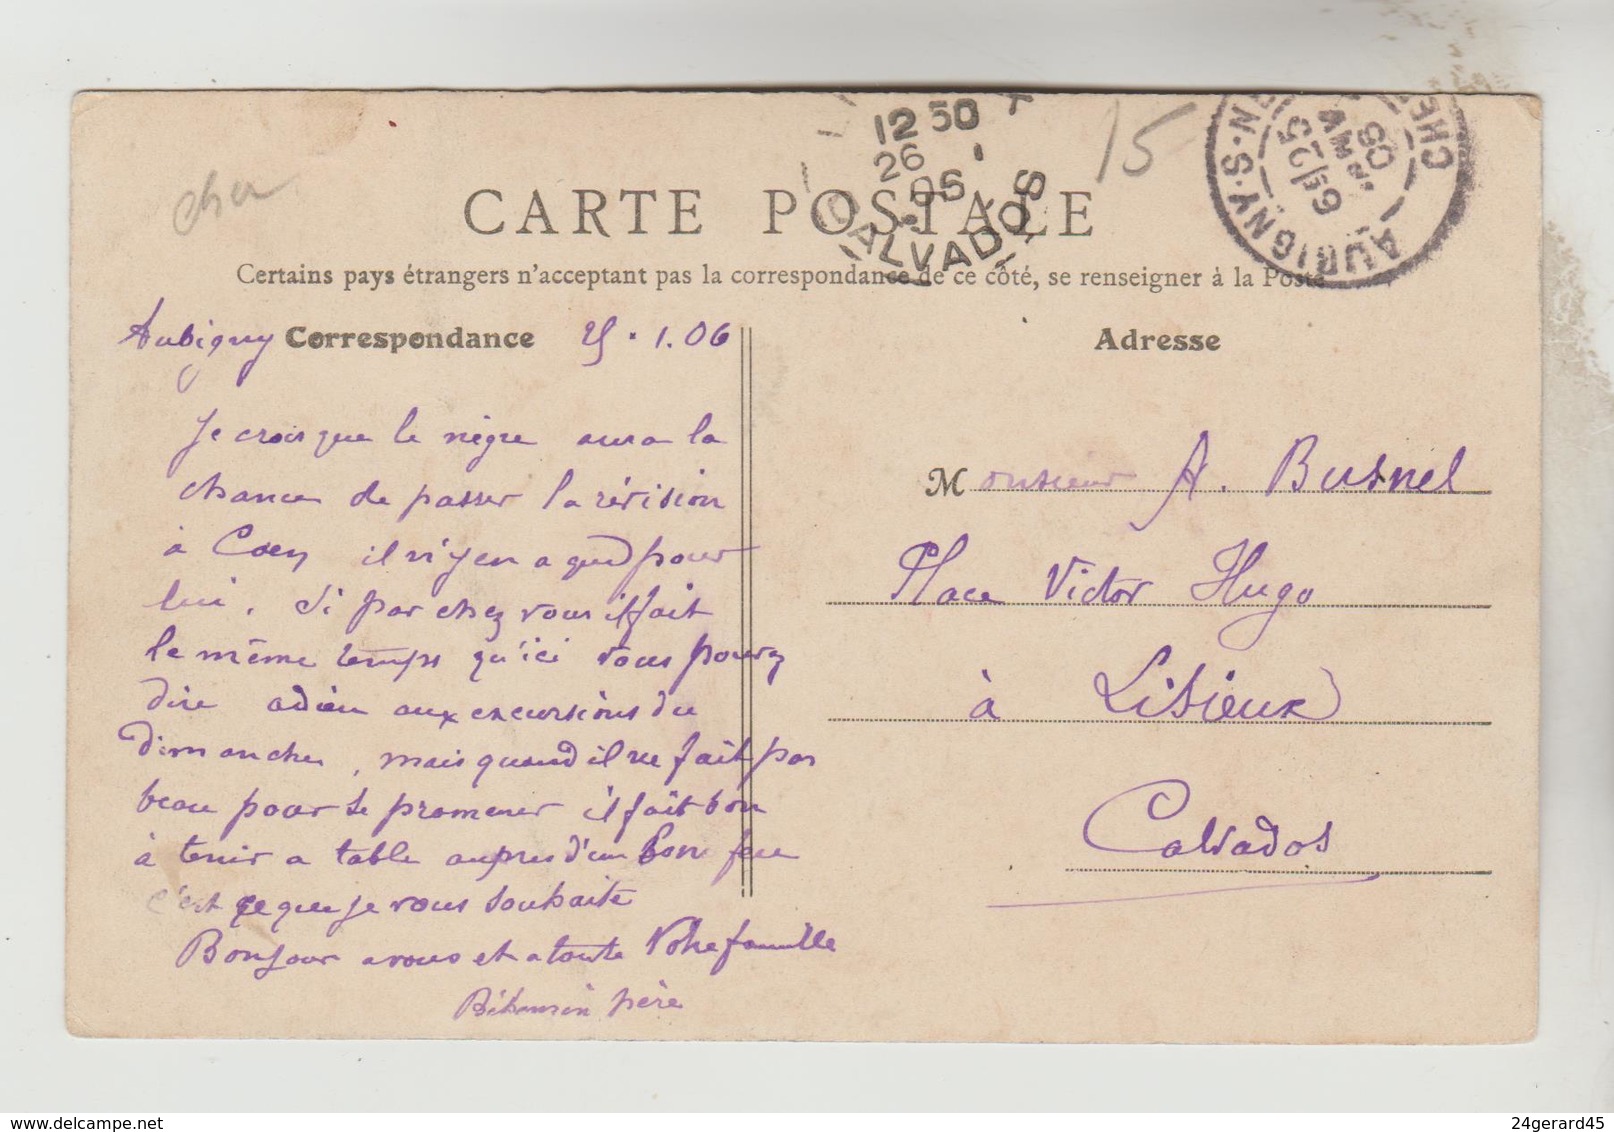 Cher
15
12 50
26
06
CALVADOS
AUBIGNY-S-N
CHER
6E 25
06
CARTE POSTALE
Certains pays étrangers n'acceptant pas la correspondance de ce côté, se renseigner à la Poste
Aubigny Correspondance 25.1.06
Je crois que le nègre aura la
chance de passer la révision
à Caen il n'y en a que pour
lui. Si par chez vous il fait
le même temps qu'ici vous pouvez
dire adieu aux excursions du
Dimanche, mais quand il ne fait pas
beau pour se promener il fait bon
à tenir a table auprès d'un bon feu
c'est ce que je vous souhaite
Bonjour a vous et a toute votre famille
père
Adresse
Monsieur A. Busnel
Place Victor Hugo
à Lisieux
Calvados
24gerard45